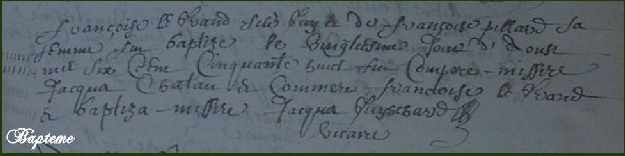 françoise le Evrard fille luy et de françoise pillard sa
femme fut baptize le vingtiesme Jour d'Aoust
mil six Cen Cinquante huict fut Compere missire
Jacque Chalau & Commere francoise le Evrard
& baptiza missire Jacque
vicaire
Bapteme